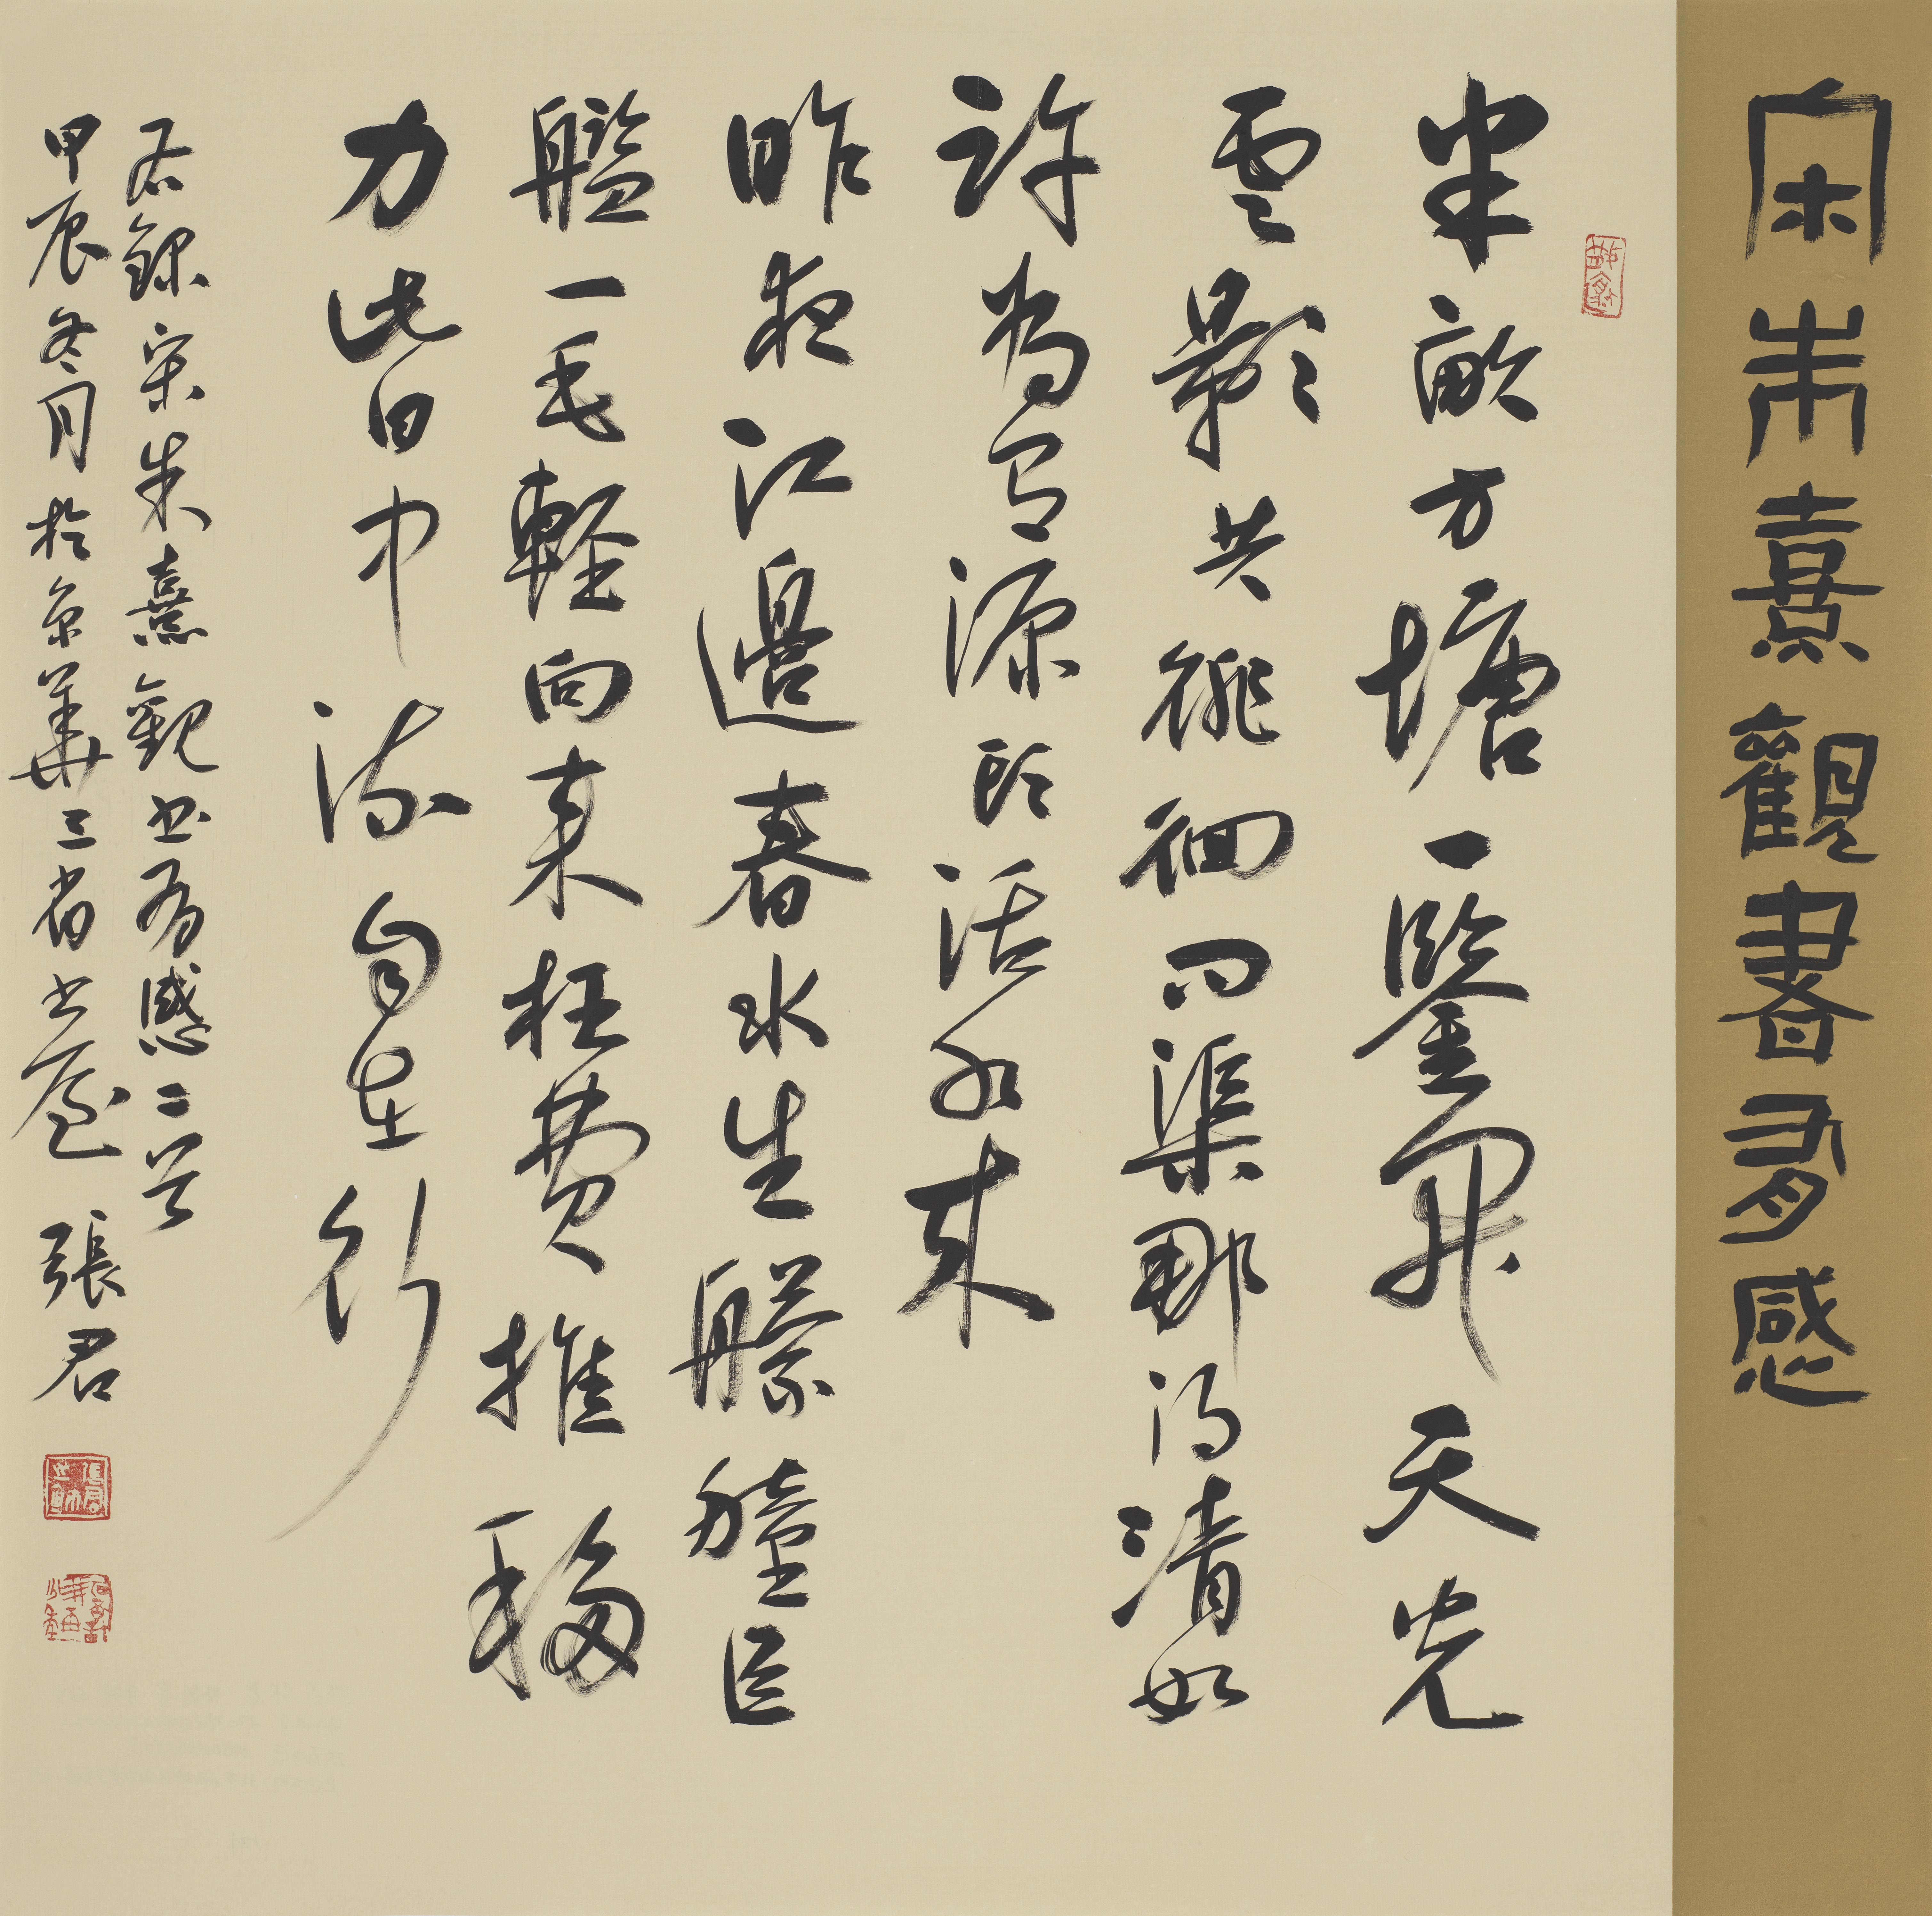 宋朱熹觀書有感
半畝方塘一鑒開天光
雲影共徘徊問渠那得清如
許為有源頭活水來
昨夜江邊春水生艨艟巨
艦一毛輕向來枉費推移
力此日中流自在行
右錄宋朱熹觀書有感二首
甲辰冬月於京華三省書屋 張君